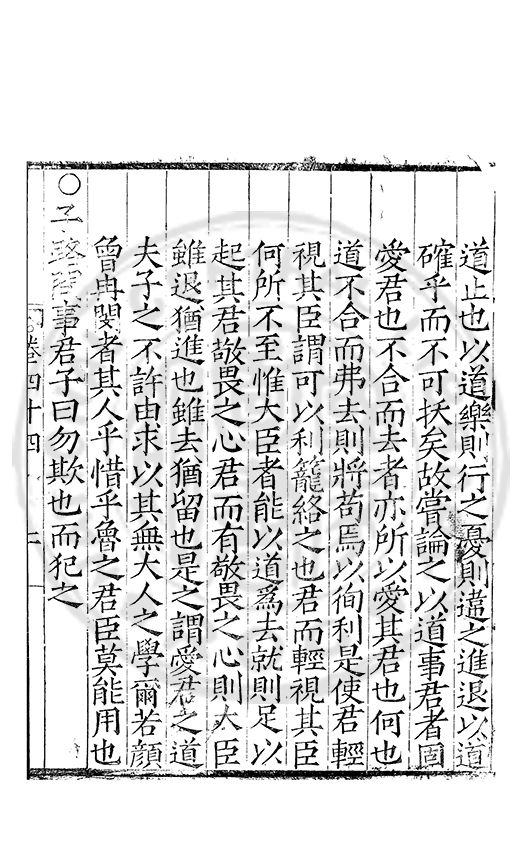 道止也以道樂則行之憂則違之進退以道
確乎而不可㧞矣故嘗論之以道事君者固
愛君也不合而去者亦所以愛其君也何也
道不合而弗去則將苟焉以徇利是使君輕
視其臣謂可以利籠絡之也君而輕視其臣
何所不至惟大臣者能以道爲去就則足以
起其君敬畏之心君而有敬畏之心則大臣
雖退猶進也雖去猶留也是之謂愛君之道
夫子之不許由求以其無大人之學爾若顔
曾冉閔者其人乎惜乎魯之君臣莫能用也
○子路問事君子曰勿欺也而犯之
卷四十四